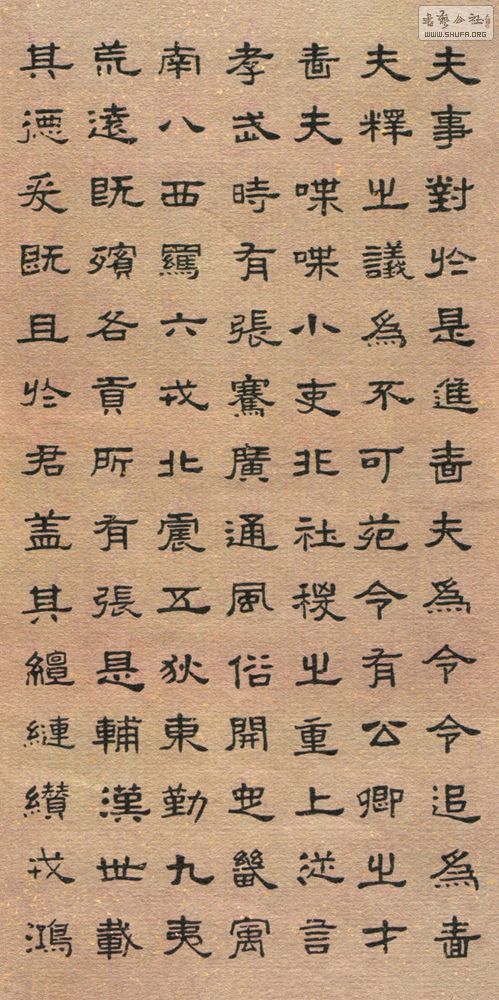 夫事對於是進嗇夫為令令退為嗇
夫釋之議為不可苑令有公卿之才
嗇夫喋喋小吏非社稷之重上從言
孝武時有張騫廣通風俗開定畿寓
南八西羈六戎北震五狄東勤九夷
荒遠既殯各貢所有張是輔漢世載
其德爰既且於君盖其繵縺纘戎鴻
WWW.SHUFA.ORG